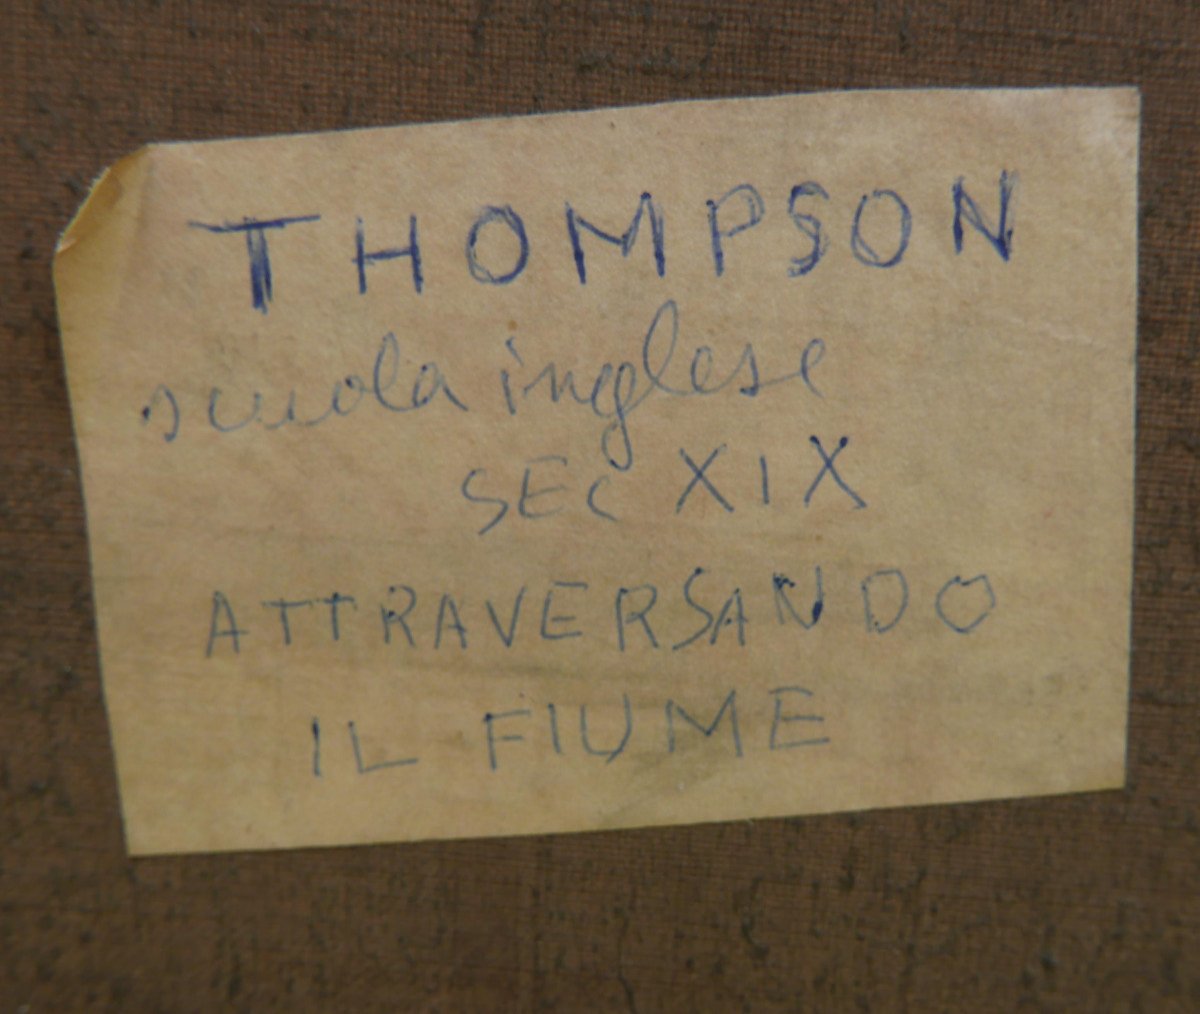 THOMPSON
scuola inglese
SEC XIX
ATTRAVERSANDO
IL FIUME